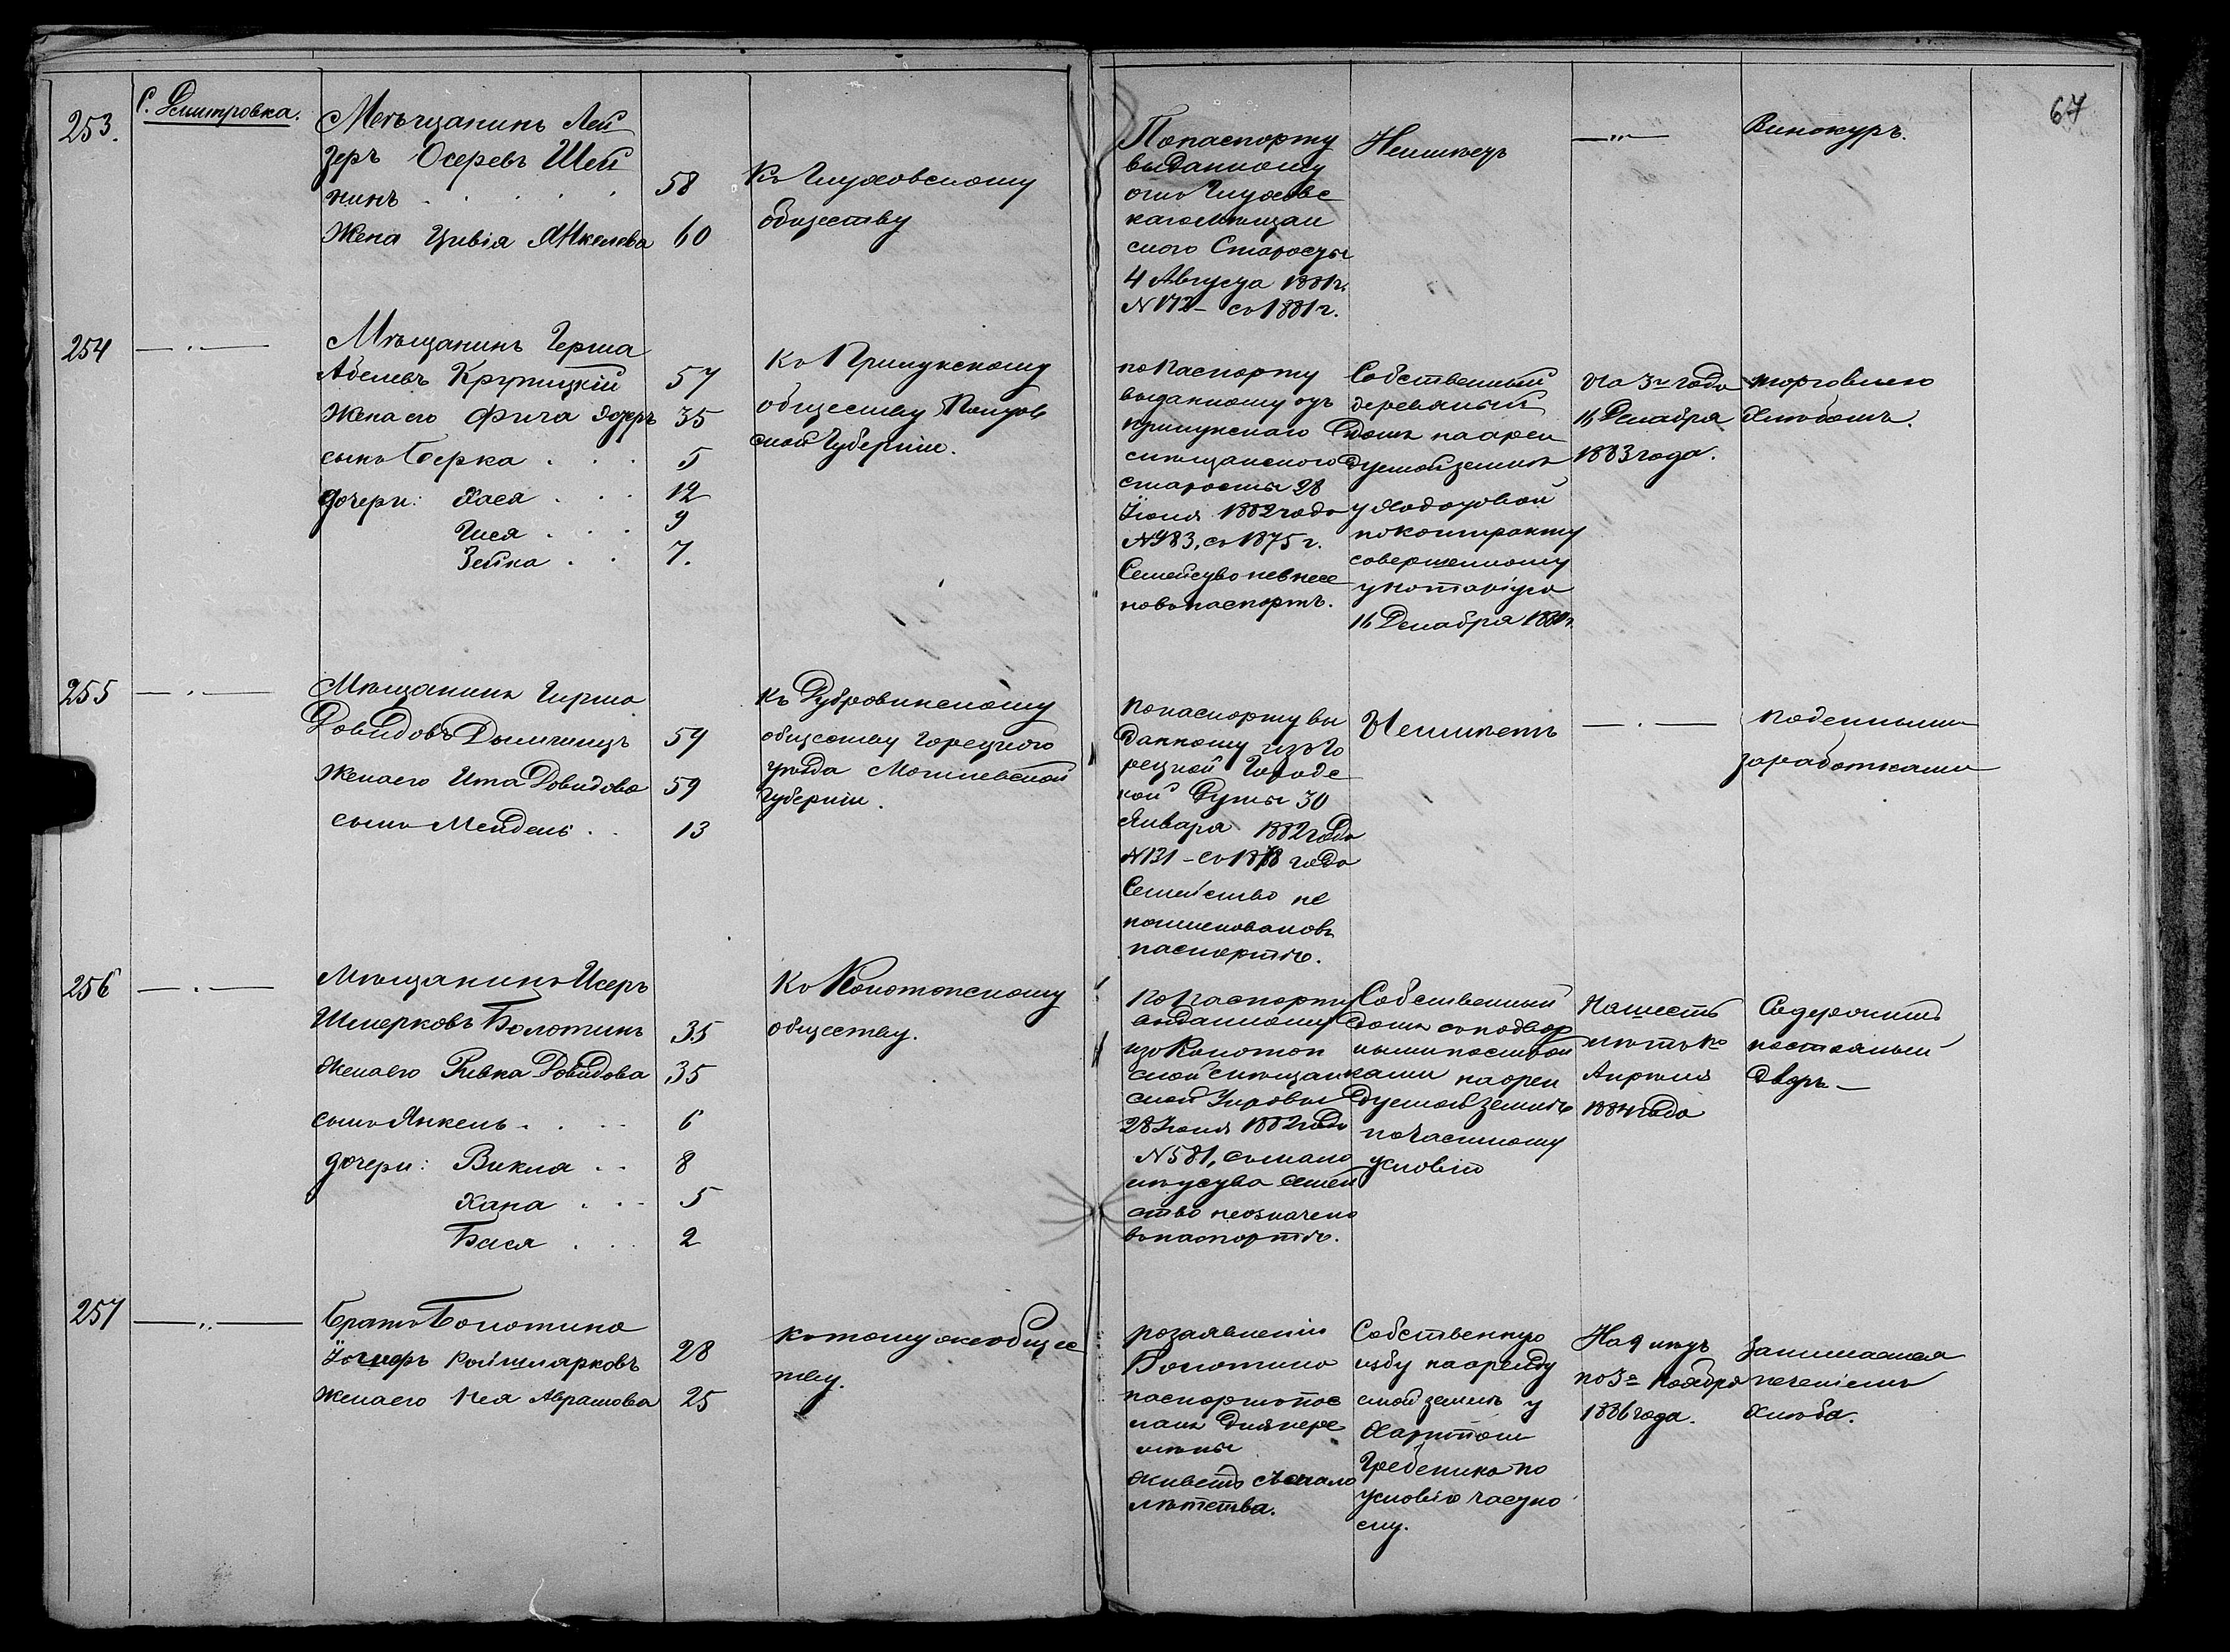 67
253.
С. Дмитровка.
Мегьщанинъ Лей
зеръ Осеревъ Шей
нинъ . . . . . 58
Жена Цивія Янкелева 60
Къ Глуховскому
обществу
Попаспорту
выданному
отъ Глуховс
кагоМѣщан
скаго Старосты
4 Августа 1881г.
N 172 - съ 1881 г.
Неимѣетъ
—"—
Винокуръ.
254
— . —
Мѣщанинъ Герша
Абелевъ Крупицкій 57
Жена его Фрича 35
сынъ Берка . . . 5
дочери: Хася . . . 12
Гися . . . 9
Зейка . . 7.
Къ Прилукскому
обществу Полтов
ской Губерніи.
по Паспорту
выданному отъ
прилукскаго
скмѣщанского
старосты 28
Іюня 1882 года
N 983, съ 1875 г.
Семейство невнесе
новъпаспортъ.
Собственный
деревяный
Домъ наарен
дуемойземлѣ
у
поконтракту
совершенному
унотаріуса
16 Декабря 1880г.
На 3 года
16 Декабря
1883 года.
торговлею
Хлѣбомъ.
255
— . —
Мѣщанинъ Гирша
Довидовъ 59
Женаего Ита Довидова 59
сынъ Мендель . . 13
Къ Дубровинскому
обществу Горецкого
уѣзда Могилевской
Губерніи.
попаспорту вы
данному изъ Го
рецкой Городс
кой Думы 30
Января 1882 года
N 131 - съ 1878 года
Семейство не
поименовановъ
паспортѣ.
Неимѣетъ
— . —
поденными
заработками
256
— . —
Мѣщанинъ Исеръ
Шмерковъ Болотинъ 35
Женаего Ривка Довидова 35
сынъ Янкель . . . . 6
дочери: Викла . . 8
Хана . . . 5
Бася . . . 2
Къ Конотопскому
обществу.
По Паспорту
выданному
изъ Конотоп
ской мѣщан
ской Управы
28 Іюня 1882 года
N 581, съ мало
лѣтства семей
ство неозначено
въпаспортѣ.
Собственный
Домъ съподвор
нымипострой
ками наарен
дуемой землѣ
почастному
условію
Нашесть
лѣтъ по
Апрѣля
1884 года
Содержитъ
постоялый
Дворъ —
257
— " —
Братъ Болотина
Іосифъ 28
Женаего Нея Абрамова 25
Къ тому же общес
тву.
позаявленію
Болотина
паспортъ пос
ланъ Для пере
мѣны
живетъ съ мало
лѣтства.
Собственную
избу нааренду
емой землѣ у
Харитона
Гребеника по
условію частно
му.
На 9 лѣтъ
по 3е ноября
1886 года.
Занимается
печеніемъ
Хлѣба.